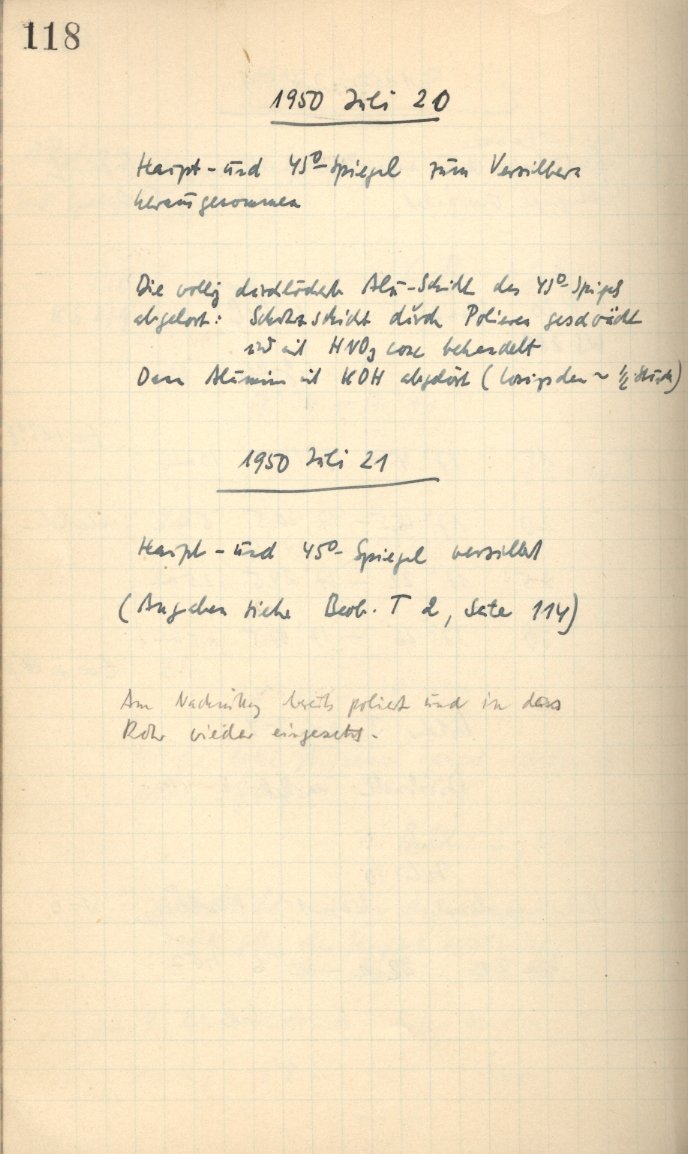 118
1950 Juli 20
Haupt- und 45°-Spiegel zum Versilbern
herausgenommen
Die völlig durchlöcherte Alu-Schicht des 45°-Spiegels
abgelöst: Schutzschicht durch Polieren geschwächt
und mit HNO3 conc behandelt
Dann Aluminium mit KOH abgelöst (
1950 Juli 21
Haupt- und 45°-Spiegel versilbert
(Angaben siehe Beob. T 2, Seite 114)
Am Nachmittag bereits poliert und in das
Rohr wieder eingesetzt.